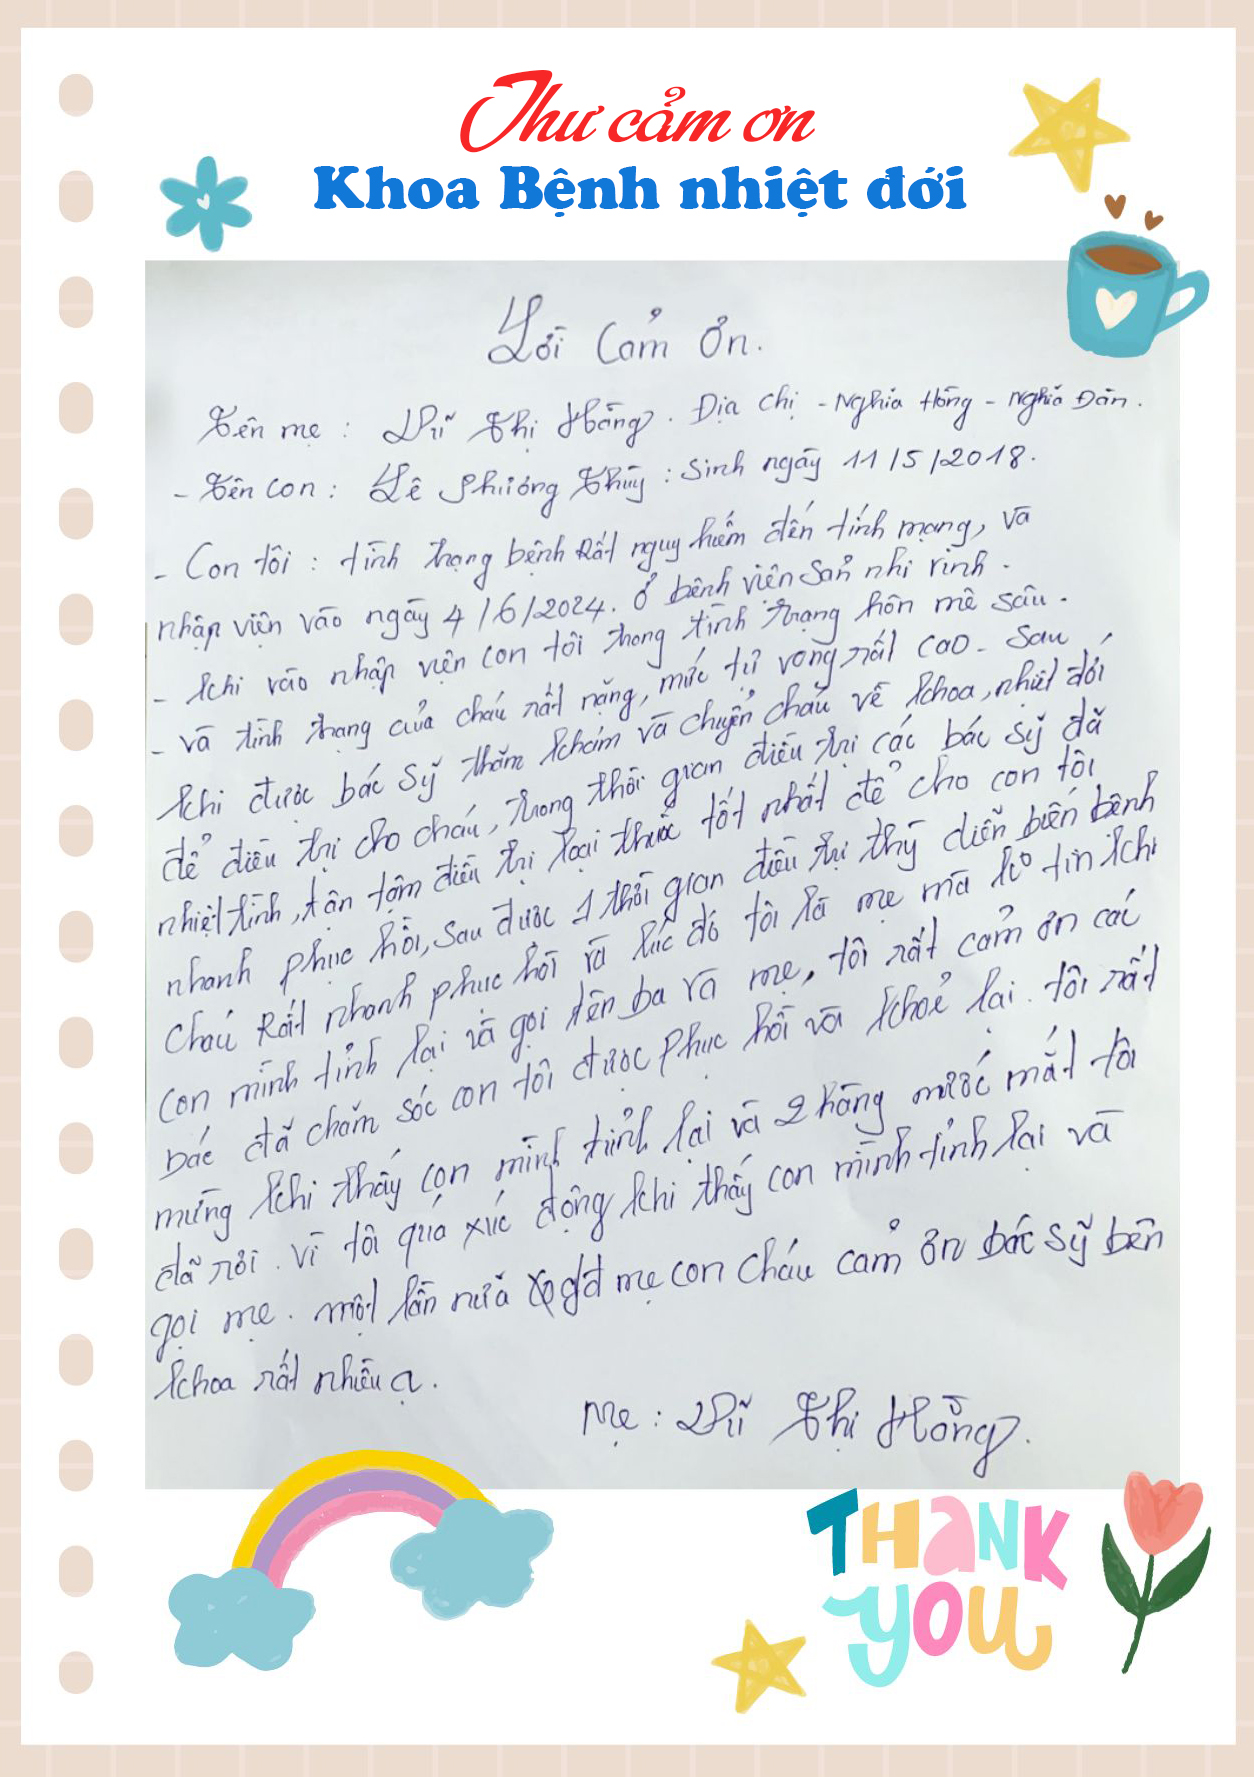 Thư cảm ơn
Khoa Bệnh nhiệt đới
Lời Cảm Ơn.
Tên mẹ : Lữ Thị Hằng. Địa chỉ - Nghĩa Hồng - Nghĩa Đàn.
- Tên con : Lê Phương Thùy : Sinh ngày 11/5/2018.
- Con tôi : tình trạng bệnh Rất nguy hiểm đến tính mạng, và
nhập viện vào ngày 4/6/2024. ở bệnh viện sản nhi vinh.
- khi vào nhập viện con tôi trong tình trạng hôn mê sâu.
- và tình trạng của cháu rất nặng, mức tử vong rất cao. sau
khi được bác sỹ thăm khám và chuyển cháu về khoa, nhiệt đới
để điều trị cho cháu, trong thời gian điều trị các bác sỹ đã
nhiệt tình, tận tâm điều trị loại thuốc tốt nhất để cho con tôi
nhanh phục hồi, sau được 1 thời gian điều trị thấy diễn biến bệnh
cháu Rất nhanh phục hồi và lúc đó tôi là mẹ mà ko tin khi
con mình tỉnh lại và gọi tên ba và mẹ, tôi rất cảm ơn các
bác đã chăm sóc con tôi được phục hồi và khoẻ lại. tôi rất
mừng khi thấy con mình tỉnh lại và 2 hàng nước mắt tôi
đã rơi. vì tôi quá xúc động khi thấy con mình tỉnh lại và
gọi mẹ. một lần nữa gđ mẹ con cháu cảm ơn bác sỹ bên
khoa rất nhiều ạ.
Mẹ : Lữ Thị Hằng.
THANK
YOU